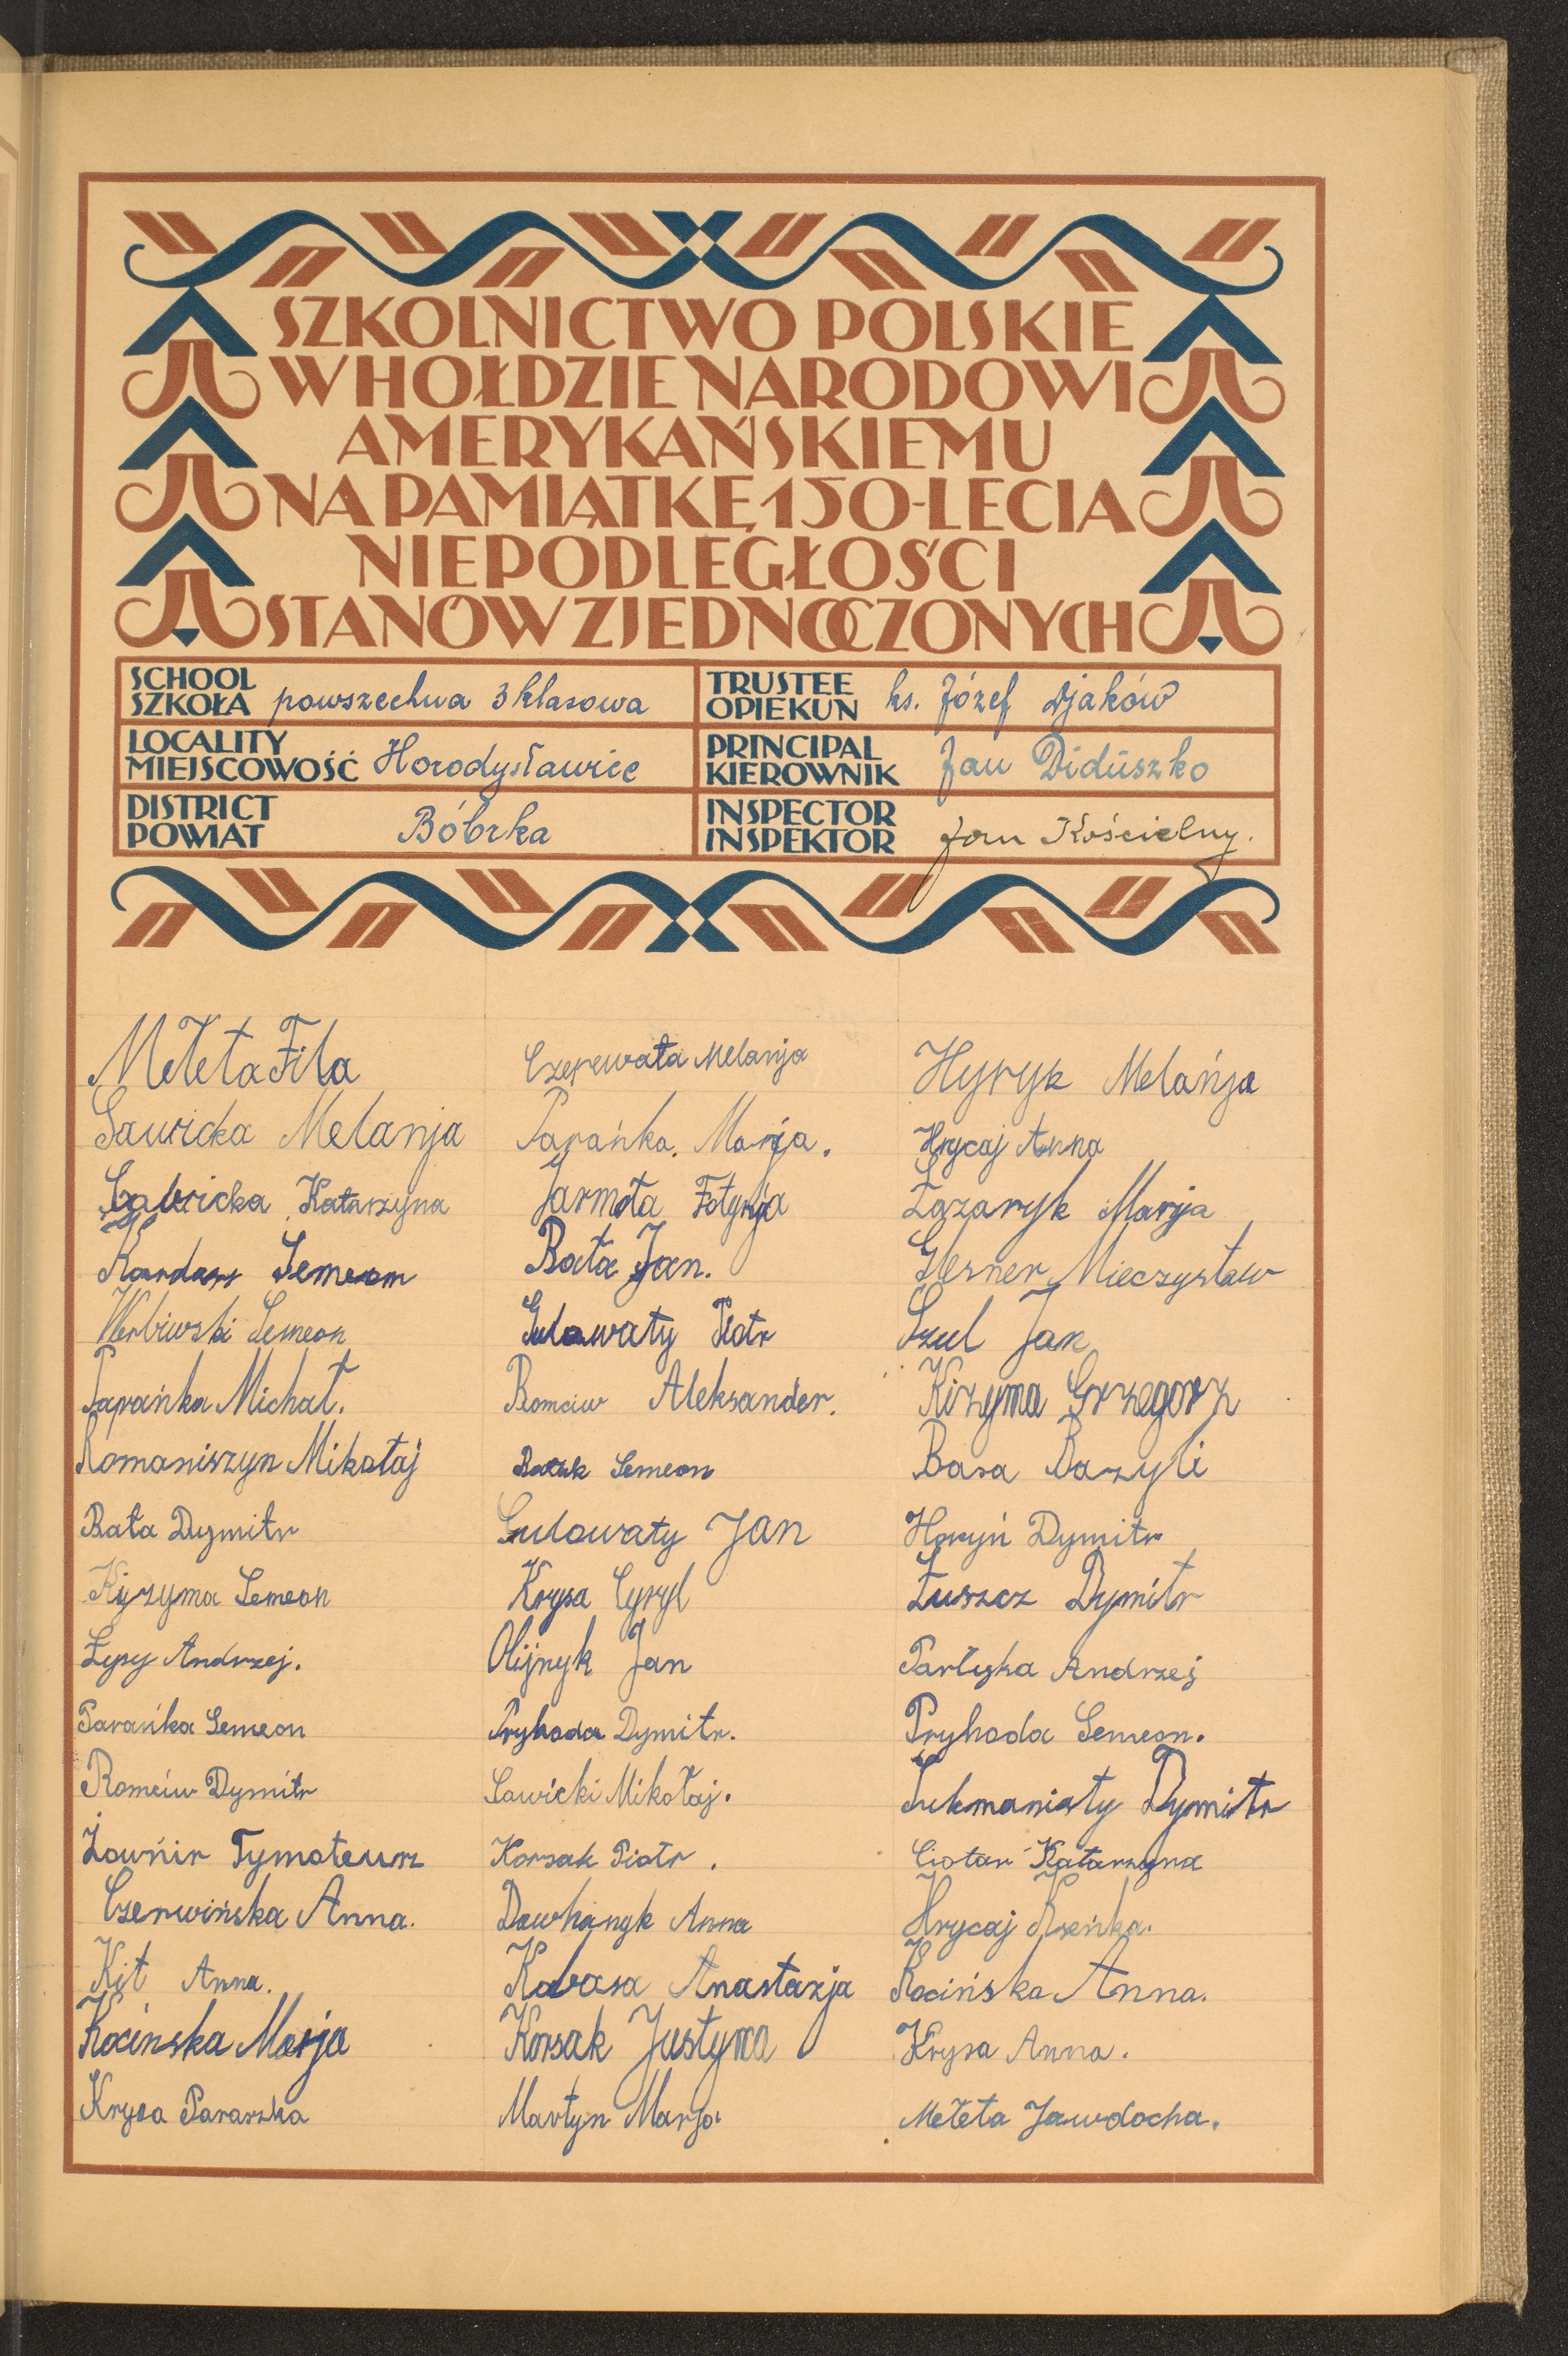 SZKOLNICTWO POLSKIE
W HOŁDZIE NARODOWI
AMERYKAŃSKIEMU
NA PAMIĄTKĘ 150-LECIA
NIEPODLEGŁOŚCI
STANÓW ZJEDNOCZONYCH
SCHOOL
SZKOŁA powszechna 3 klasowa
TRUSTEE
OPIEKUN ks. Józef Djaków
LOCALITY
MIEJSCOWOŚĆ Horodysławice
PRINCIPAL
KIEROWNIK Jan Diduszko
DISTRICT
POWIAT Bóbrka
INSPECTOR
INSPEKTOR Jan Kościelny.
Mełeta Fila
Sawicka Melanja
Katarzyna
Semeon
Werbiwski Semeon
Parańka Michał.
Romaniszyn Mikołaj
Bała Dymitr
Kyzyma Semeon
Łysy Andrzej.
Parańka Semeon
Romciw Dymitr
Żownir Tymoteusz
Czerwińska Anna.
Kit Anna.
Kocinska Marja
Krysa Paraszka
Czerewata Melanja
Parańka Marja.
Jarmoła Fotynja
Bała Jan.
Gulowaty Piotr
Romciw Aleksander.
Semeon
Gulowaty Jan
Krysa Cyryl
Olijnyk Jan
Pryhoda Dymitr.
Sawicki Mikołaj.
Korsak Piotr.
Dowhanyk Anna
Anastazja
Korsak Justyna
Martyn Marja
Hyryk Melańja
Hrycaj Anna
Łazaryk Marja
Glesner Mieczysław
Szul Jan
Kizyma Grzegorz
Basa Bazyli
Horyń Dymitr
Łuszcz Dymitr
Partyka Andrzej
Pryhoda Semeon.
Sukmaniaty Dymitr
Ciotar Katarzyna
Hrycaj Kseńka.
Kocińska Anna.
Krysa Anna.
Mełeta Jawdocha.